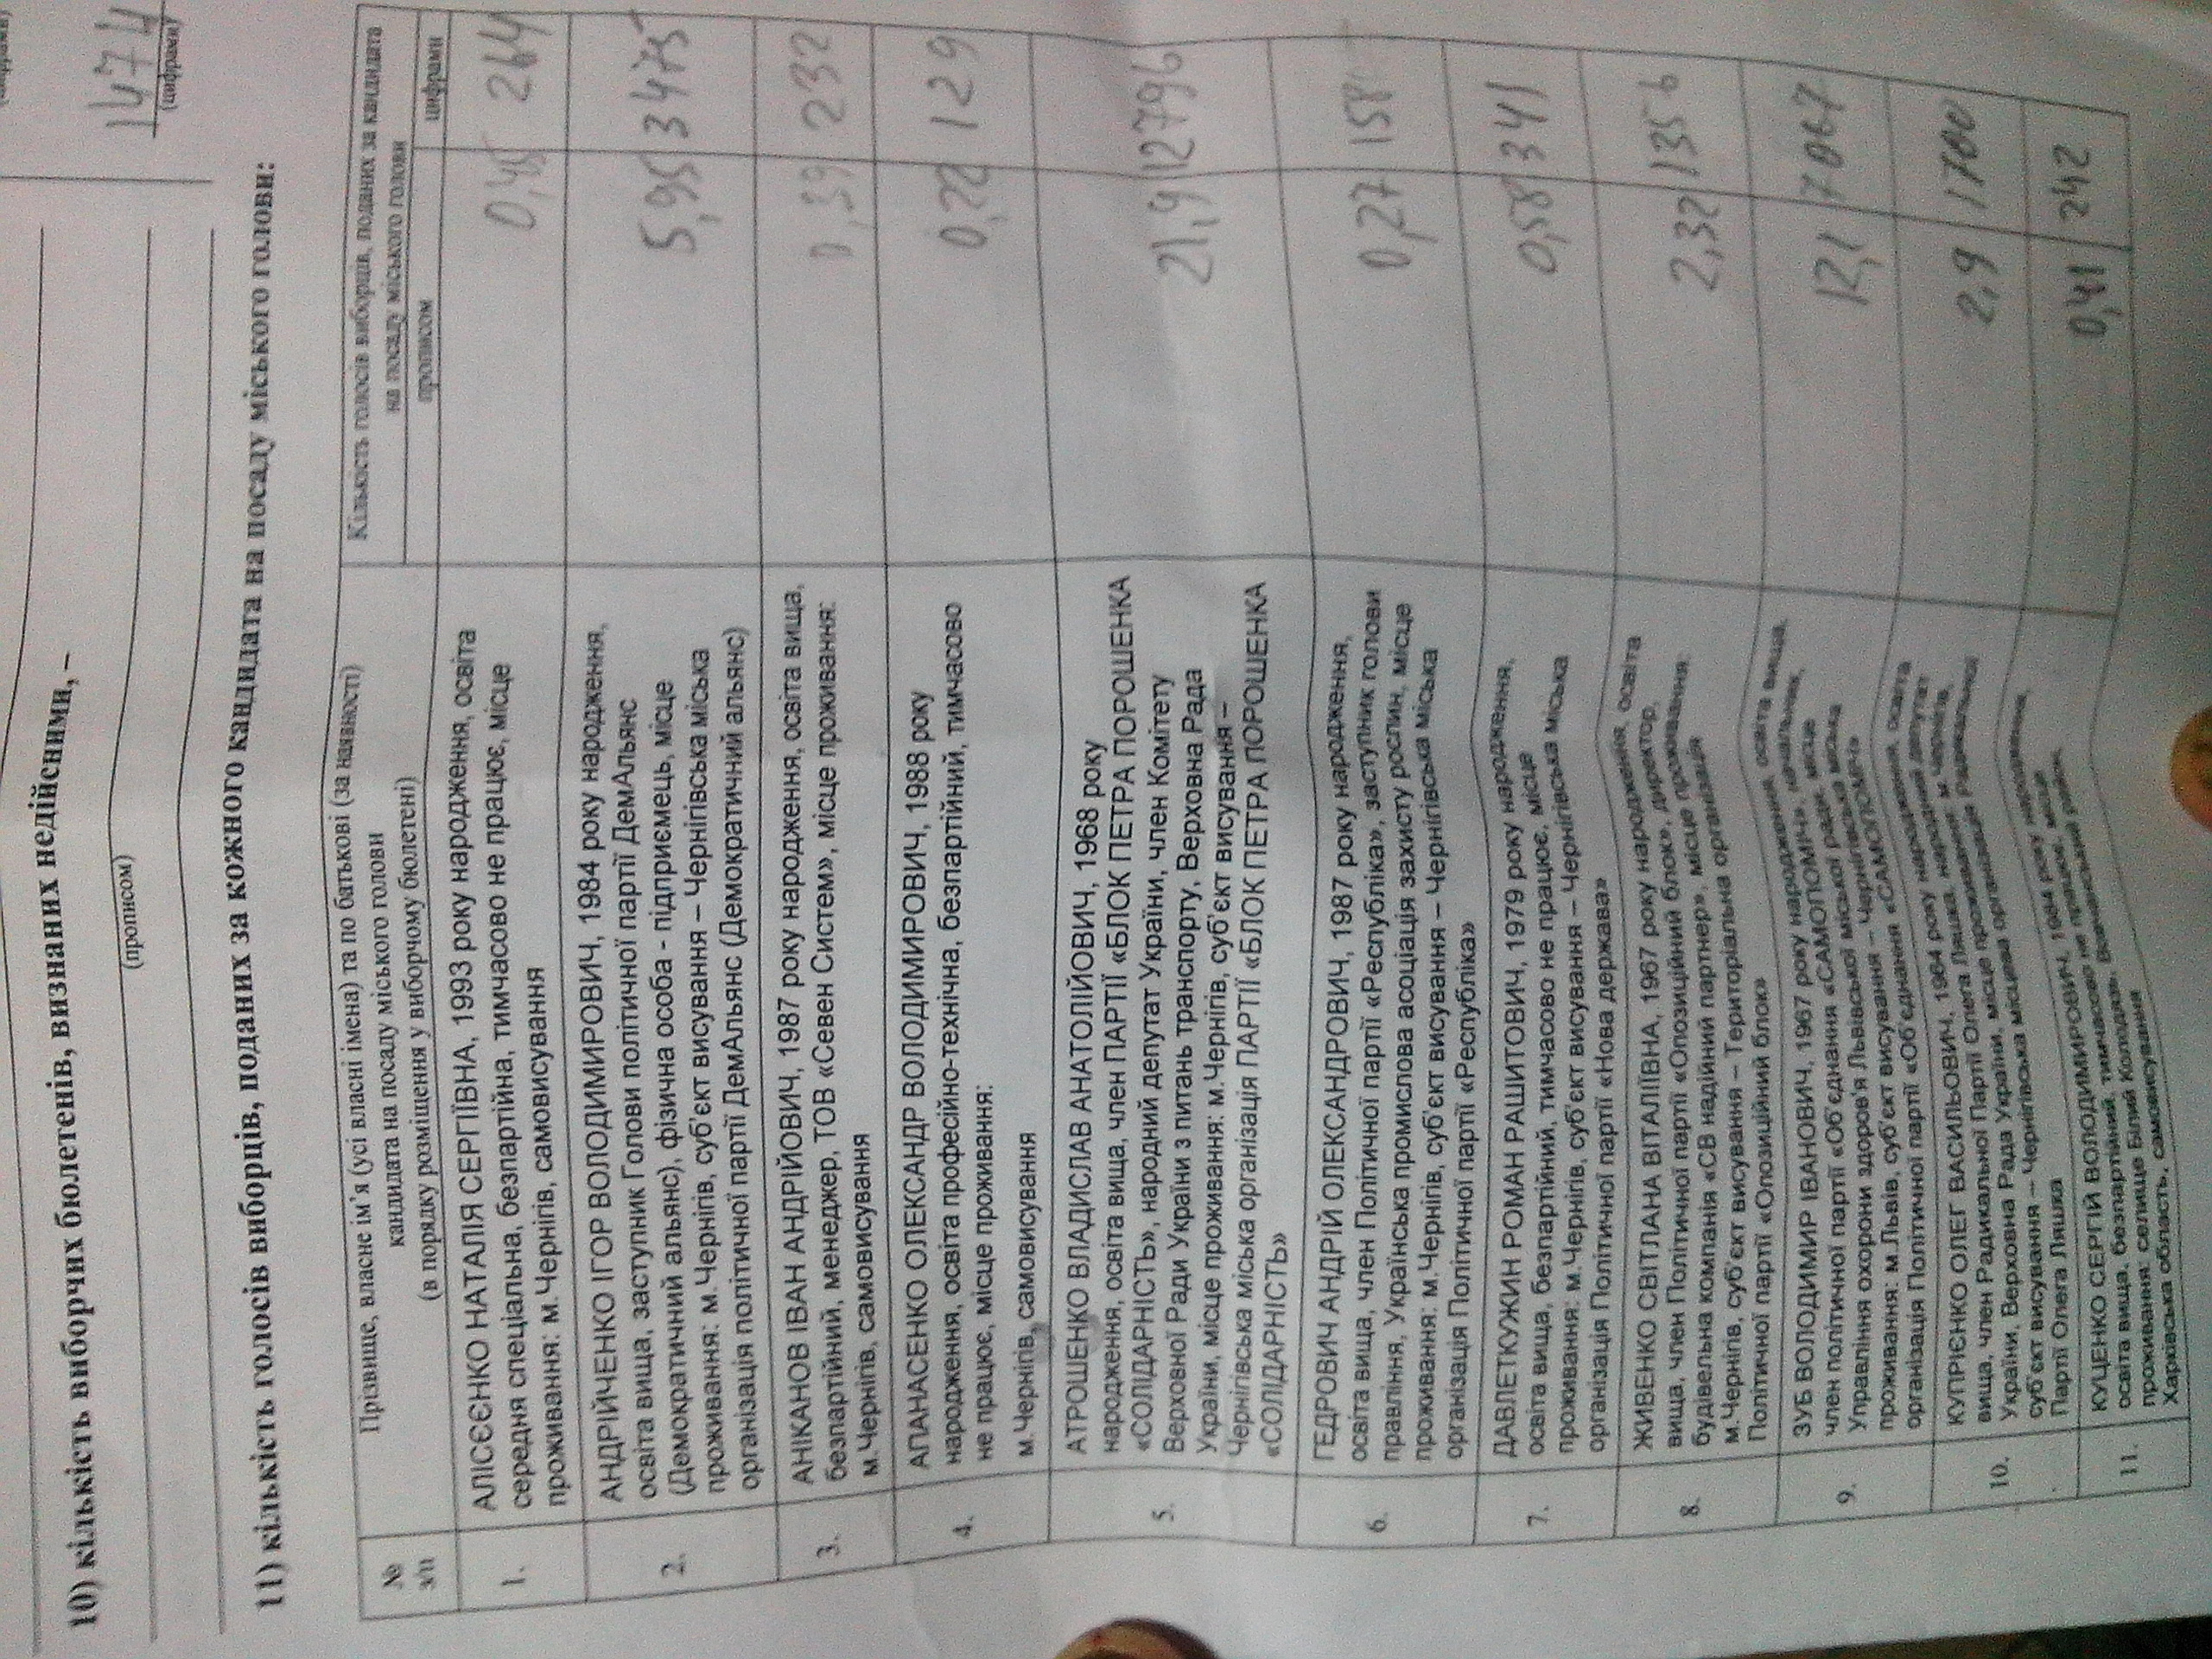 1474
(цифрами)
10) кількість виборчих бюлетенів, визнаних недійсними, –
(прописом)
11) кількість голосів виборців, поданих за кожного кандидата на посаду міського голови:
№
з/п
Прізвище, власне ім’я (усі власні імена) та по батькові (за наявності)
кандидата на посаду міського голови
(в порядку розміщення у виборчому бюлетені)
Кількість голосів виборців, поданих за кандидата
на посаду міського голови
прописом
цифрами
1.
АЛІСЄЄНКО НАТАЛІЯ СЕРГІЇВНА, 1993 року народження, освіта
середня спеціальна, безпартійна, тимчасово не працює, місце
проживання: м.Чернігів, самовисування
0,45
264
2.
АНДРІЙЧЕНКО ІГОР ВОЛОДИМИРОВИЧ, 1984 року народження,
освіта вища, заступник Голови політичної партії ДемАльянс
(Демократичний альянс), фізична особа - підприємець, місце
проживання: м.Чернігів, суб’єкт висування – Чернігівська міська
організація політичної партії ДемАльянс (Демократичний альянс)
5,95
3475
3.
АНІКАНОВ ІВАН АНДРІЙОВИЧ, 1987 року народження, освіта вища,
безпартійний, менеджер, ТОВ «Севен Систем», місце проживання:
м.Чернігів, самовисування
0,39
232
4.
АПАНАСЕНКО ОЛЕКСАНДР ВОЛОДИМИРОВИЧ, 1988 року
народження, освіта професійно-технічна, безпартійний, тимчасово
не працює, місце проживання:
м.Чернігів, самовисування
0,22
129
5.
АТРОШЕНКО ВЛАДИСЛАВ АНАТОЛІЙОВИЧ, 1968 року
народження, освіта вища, член ПАРТІЇ «БЛОК ПЕТРА ПОРОШЕНКА
«СОЛІДАРНІСТЬ», народний депутат України, член Комітету
Верховної Ради України з питань транспорту, Верховна Рада
України, місце проживання: м.Чернігів, суб’єкт висування –
Чернігівська міська організація ПАРТІЇ «БЛОК ПЕТРА ПОРОШЕНКА
«СОЛІДАРНІСТЬ»
21,9
12796
6.
ГЕДРОВИЧ АНДРІЙ ОЛЕКСАНДРОВИЧ, 1987 року народження,
освіта вища, член Політичної партії «Республіка», заступник голови
правління, Українська промислова асоціація захисту рослин, місце
проживання: м.Чернігів, суб’єкт висування – Чернігівська міська
організація Політичної партії «Республіка»
0,27
158
7.
ДАВЛЕТКУЖИН РОМАН РАШИТОВИЧ, 1979 року народження,
освіта вища, безпартійний, тимчасово не працює, місце
проживання: м.Чернігів, суб’єкт висування – Чернігівська міська
організація Політичної партії «Нова держава»
0,58
341
8.
ЖИВЕНКО СВІТЛАНА ВІТАЛІЇВНА, 1967 року народження, освіта
вища, член Політичної партії «Опозиційний блок», директор,
будівельна компанія «СВ надійний партнер», місце проживання:
м.Чернігів, суб’єкт висування – Територіальна організація
Політичної партії «Опозиційний блок»
2,32
1356
9.
ЗУБ ВОЛОДИМИР ІВАНОВИЧ, 1967 року народження, освіта вища,
член політичної партії «Об’єднання «САМОПОМІЧ», начальник,
Управління охорони здоров’я Львівської міської ради, місце
проживання: м.Львів, суб’єкт висування – Чернігівська міська
організація Політичної партії «Об’єднання «САМОПОМІЧ»
12,1
7067
10.
КУПРІЄНКО ОЛЕГ ВАСИЛЬОВИЧ, 1964 року народження, освіта
вища, член Радикальної Партії Олега Ляшка, народний депутат
України, Верховна Рада України, місце проживання: м.Чернігів,
суб’єкт висування – Чернігівська місцева організація Радикальної
Партії Олега Ляшка
2,9
1700
11.
КУЦЕНКО СЕРГІЙ ВОЛОДИМИРОВИЧ, 1984 року народження,
освіта вища, безпартійний, тимчасово не працює, місце
проживання: селище Білий Колодязь, Вовчанський район,
Харківська область, самовисування
0,41
242